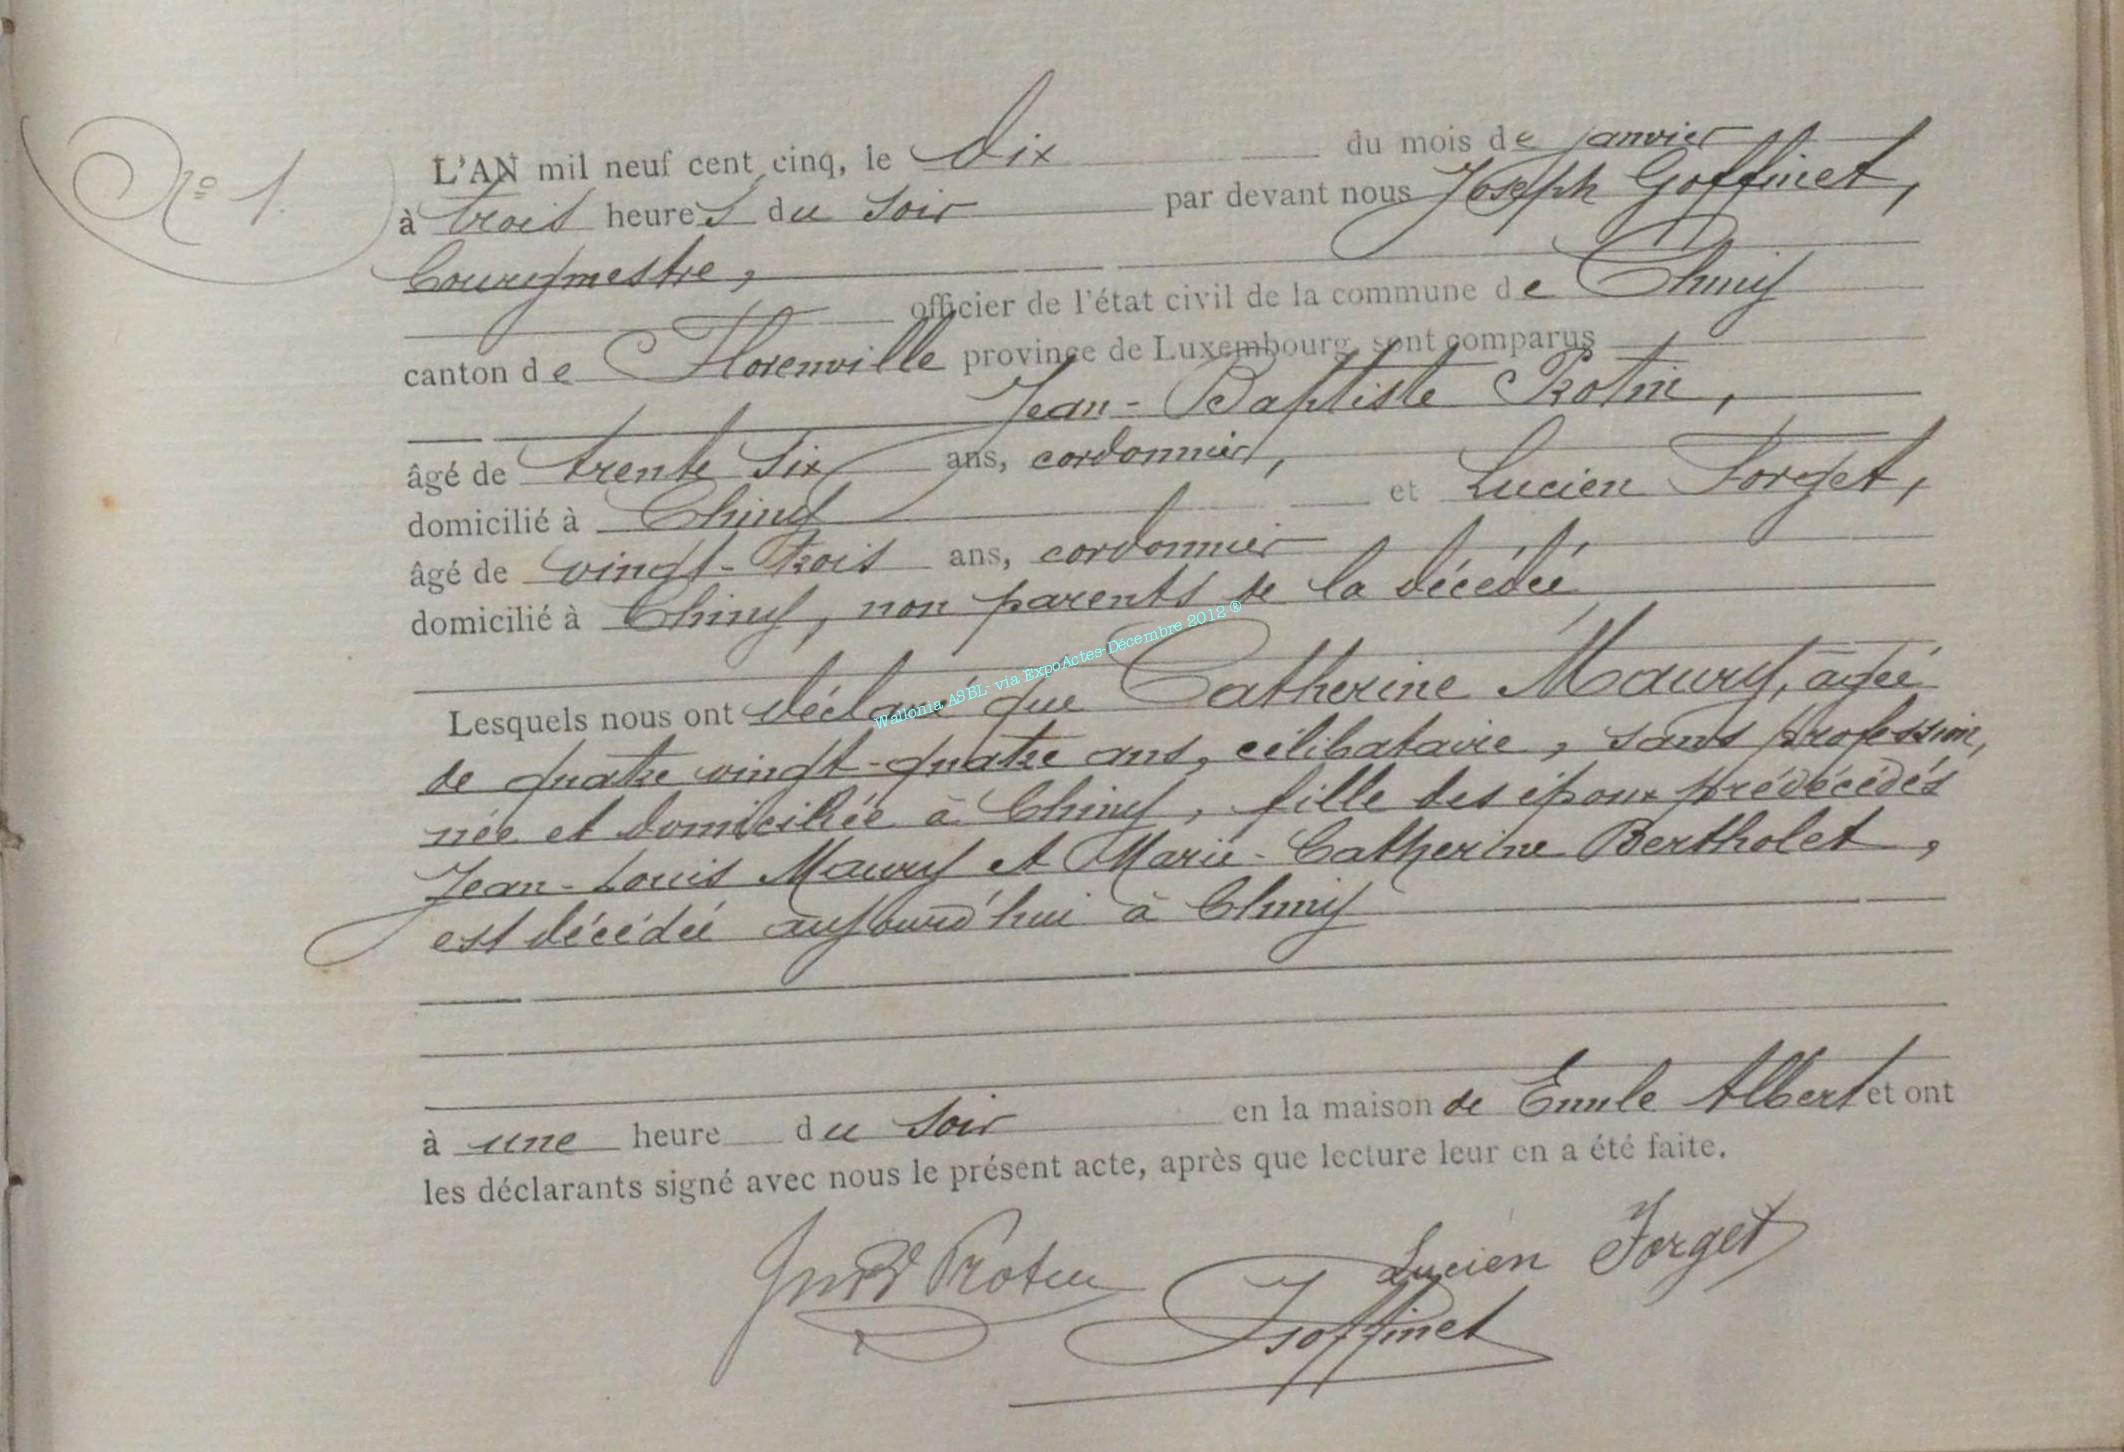 N° 1.
L'AN mil neuf cent cinq, le dix du mois de janvier
à trois heures du soir par devant nous Joseph Goffinet,
bourgmestre,
officier de l'état civil de la commune de Chiny
canton de Florenville province de Luxembourg, sont comparus
Jean-Baptiste Rotin,
âgé de trente six ans, cordonnier,
domicilié à Chiny et Lucien Forget,
âgé de vingt-trois ans, cordonnier
domicilié à Chiny, non parents de la décédée,
Lesquels nous ont déclaré que Catherine Maury, âgée
de quatre vingt-quatre ans, célibataire, sans profession,
née et domiciliée à Chiny, fille des époux prédécédés
Jean-Louis Maury et Marie-Catherine Bertholet,
est décédée aujourd'hui à Chiny
à une heure du soir en la maison de Emile Albert et ont
les déclarants signé avec nous le présent acte, après que lecture leur en a été faite.
Rotin
Lucien Forget
J Goffinet
Wallonia ASBL- via ExpoActes-Décembre 2012 ®